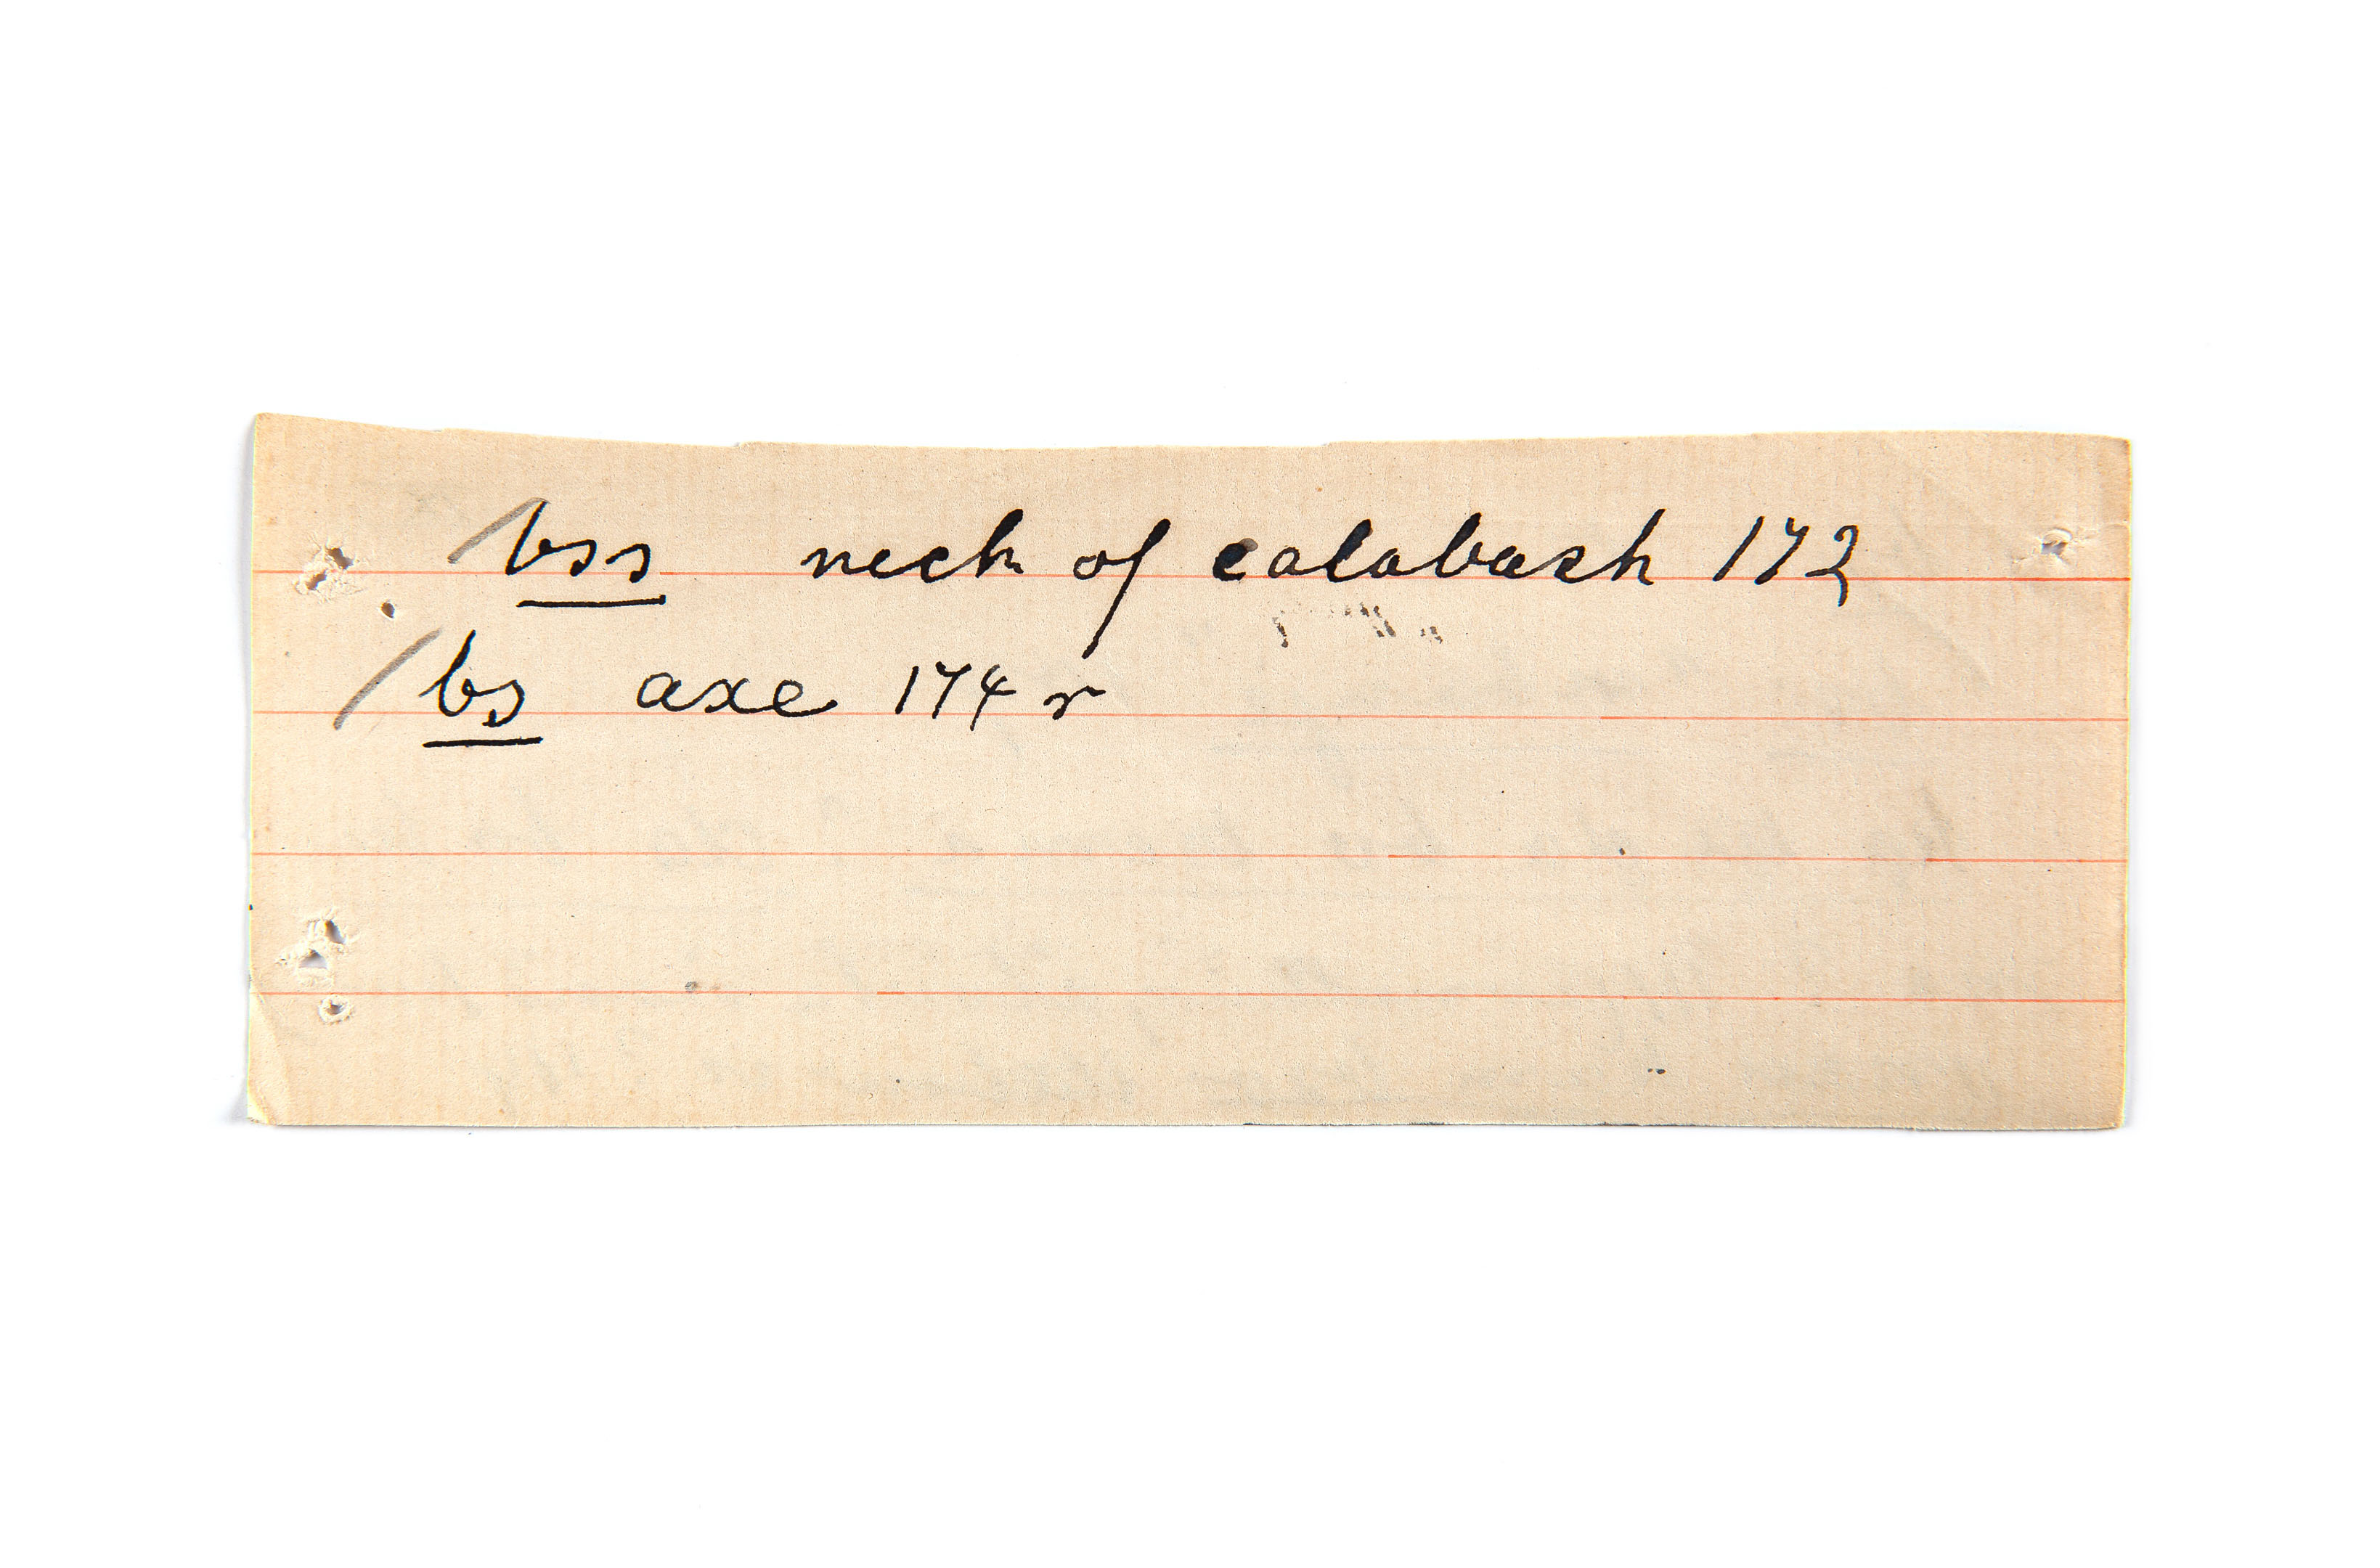 bss neck of calabash 172
bs axe 174 r